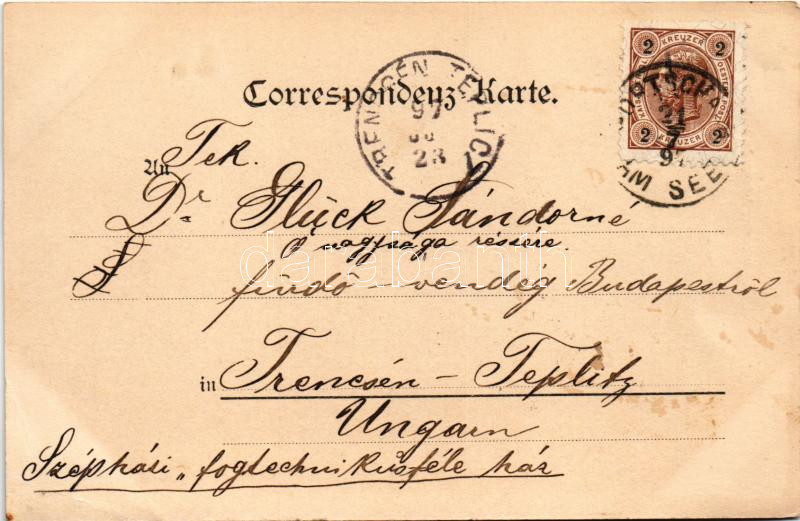 Correspondenz-Karte.
TRENCSÉN TEPLICZ
97
23
2 KREUZER 2
2 KREUZER 2
21
7
97
AM SEE
An Tek.
Dr Glück Sándorné
ő nagysága részére.
fürdő-vendég Budapestről
in Trencsén-Teplitz
Ungarn
Szépházi „fogtechnikusféle ház
darabanth